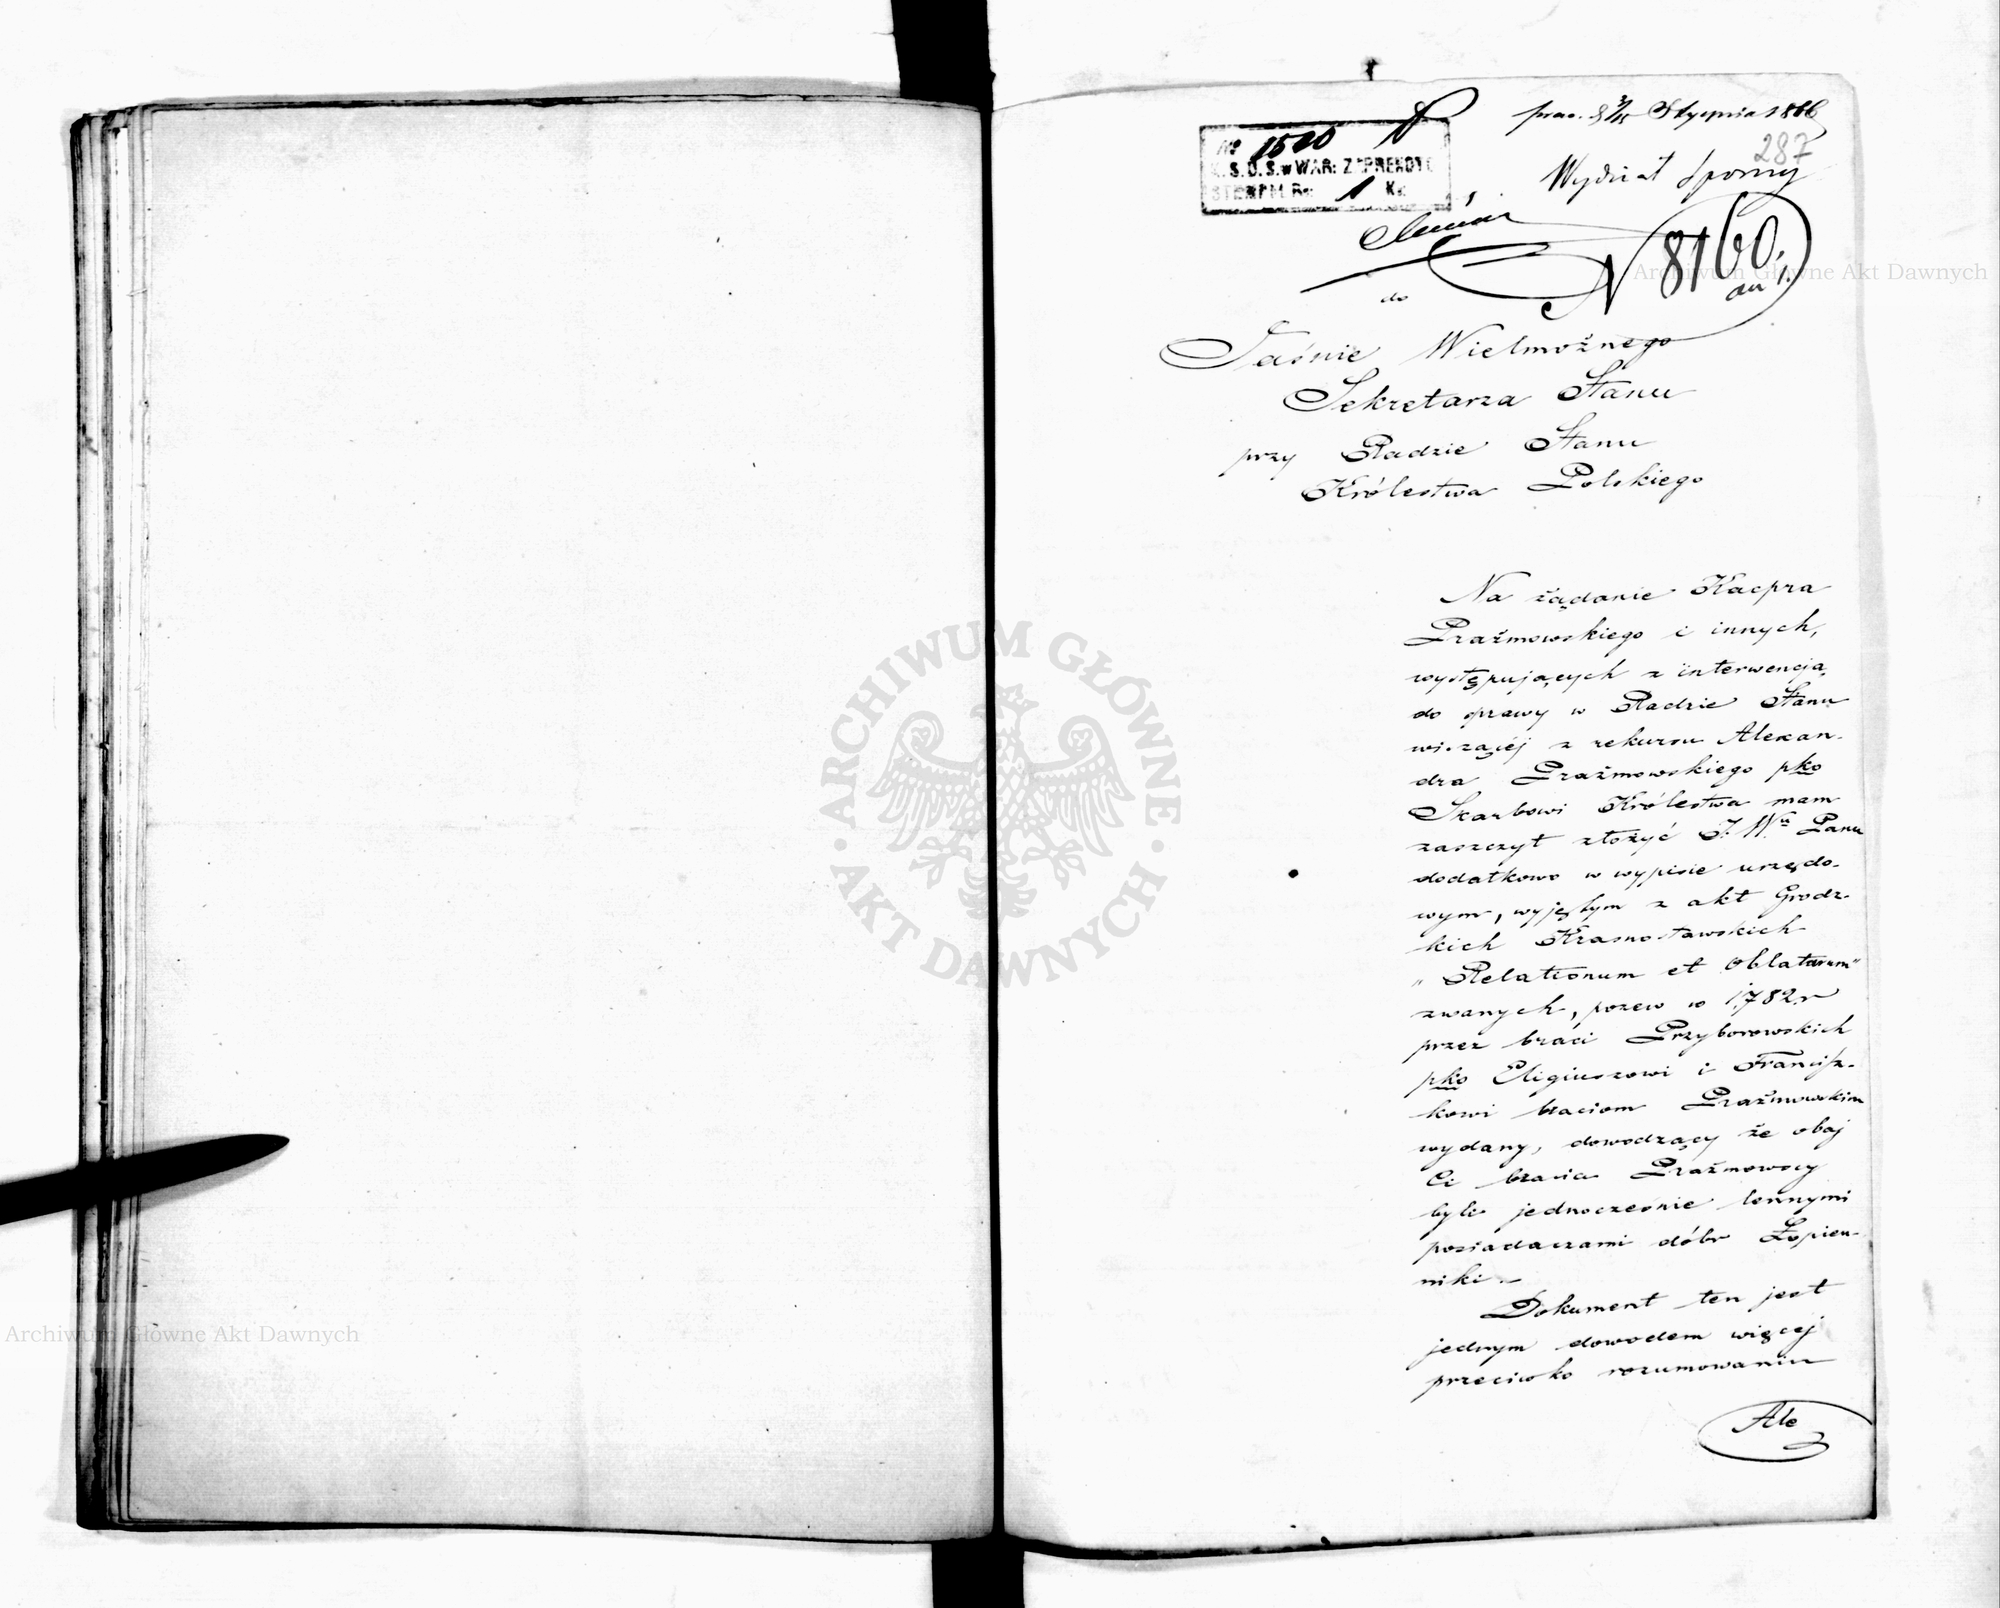 Stycznia 1866
287
Wydział Sporny
№ 1520
K. S. D. S. w WAR: ZAPREKOT
STEMPEL Rs: 1 K:
N 8160
do
Jaśnie Wielmożnego
Sekretarza Stanu
przy Radzie Stanu
Królestwa Polskiego
Na żądanie Kacpra
Prażmowskiego i innych,
występujących z interwencją
do sprawy w Radzie Stanu
wiszącéj z rekursu Alexan-
dra Prażmowskiego pko
Skarbowi Królestwa mam
zaszczyt złożyć J. Wu Panu
dodatkowo w wypisie urzędo-
wym, wyjętym z akt Grodz-
kich Krasnostawskich
„Relationum et Oblatarum"
zwanych, pozew w 1782 r
przez braci Przyborowskich
pko Eligiuszowi i Francisz-
kowi braciom Prażmowskim
wydany, dowodzący że obaj
Ci bracia Prażmowscy
byli jednocześnie lennymi
posiadaczami dóbr Łopien-
niki.
Dokument ten jest
jednym dowodem więcej
przeciwko rozumowaniu
Ale
ARCHIWUM GŁÓWNE AKT DAWNYCH
Archiwum Główne Akt Dawnych
Archiwum Główne Akt Dawnych